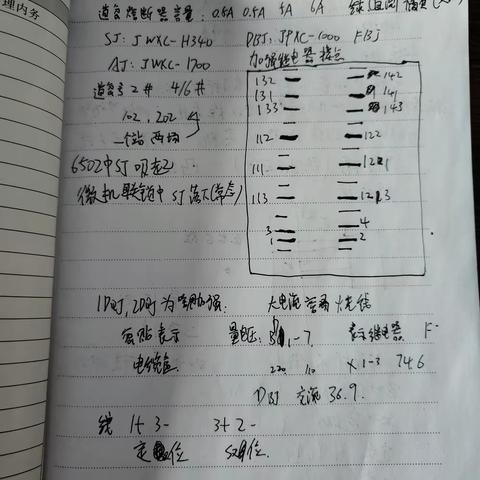 理内务
道岔熔断器容量: 0.5A 0.5A 5A 6A
SJ: JWXC-H340 DBJ: JPXC-1000 FBJ
AJ: JWXC-1700 加强继电器接点
道岔 2# 4/6#
102, 202
一个站 两场
6502中SJ吸起
微机联锁中SJ落下(常态)
132 142
131 141
133 143
112 122
111 121
113 123
3 4
1 2
1DQJ, 2DQJ 为 加强: 大电流 容易 烧
表示 量电压: 1-7 表示继电器
220 110 X1-3 74.6
DBJ 交流 36.9.
线 1+ 3- 3+ 2-
定位 反位